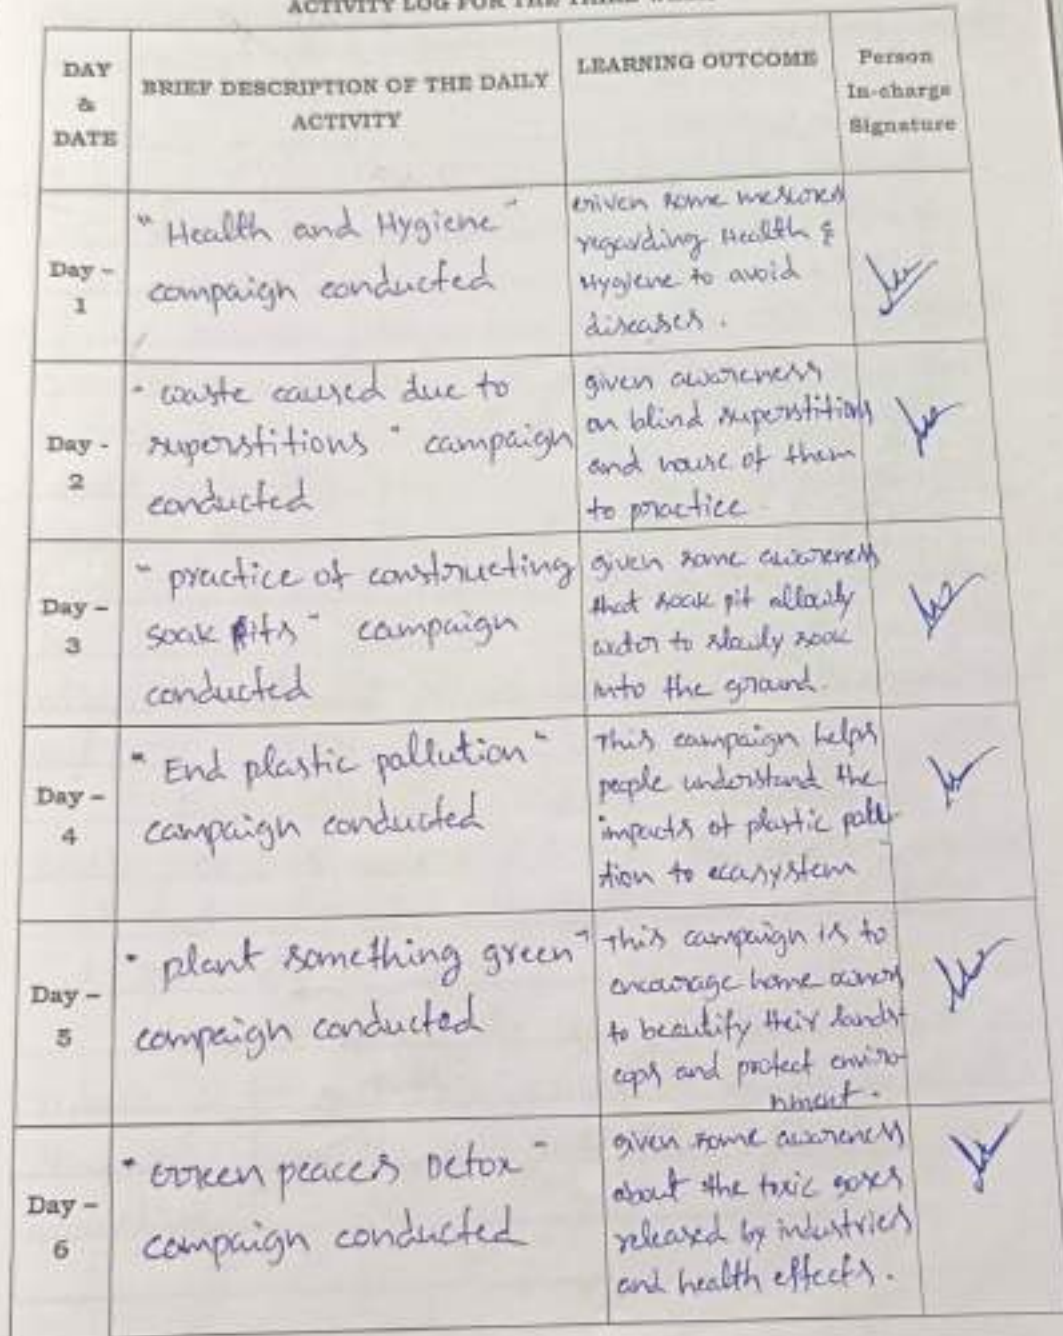 ACTIVITY LOG FOR THE THIRD
DAY
&
DATE
BRIEF DESCRIPTION OF THE DAILY
ACTIVITY
LEARNING OUTCOME
Person
In-charge
Signature
Day -
1
"Health and Hygiene"
compaign conducted
Given some mesures
regarding Health &
Hygiene to avoid
diseases.
Day -
2
"waste caused due to
superstitions" campaign
conducted
given awareness
on blind superstitions
and nouse of them
to practice
Day -
3
"practice of constructing
soak pits" campaign
conducted
given some awareness
that soak pit allowly
water to slowly soak
into the ground.
Day -
4
"End plastic pollution"
campaign conducted
This campaign helps
people understand the
impacts of plastic pollu-
tion to ecosystem
Day -
5
"plant something green"
compaign conducted
This campaign is to
encourage home owners
to beautify their lands-
caps and protect enviro-
nment.
Day -
6
"Green peaces Detox"
campaign conducted
given some awareness
about the toxic gases
released by industries
and health effects.